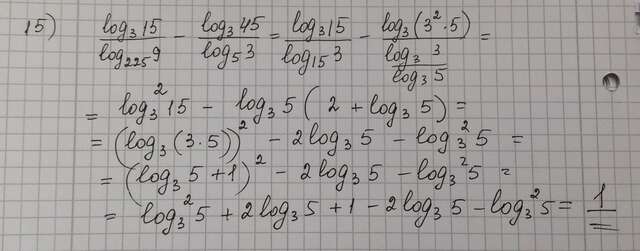 15) \frac{log₃15}{log₂₂₅9} - \frac{log₃45}{log₅3} = \frac{log₃15}{log₁₅3} - \frac{log₃(3²·5)}{\frac{log₃3}{log₃5}} =
= log₃²15 - log₃5(2 + log₃5) =
= (log₃(3·5))² - 2log₃5 - log₃²5 =
= (log₃5 + 1)² - 2log₃5 - log₃²5 =
= log₃²5 + 2log₃5 + 1 - 2log₃5 - log₃²5 = 1